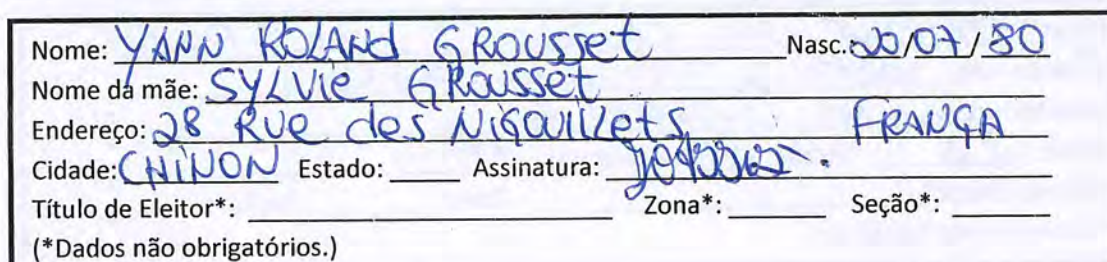 Nome: YANN ROLAND GROUSSET Nasc.: 20/07/80
Nome da mãe: SYLVIE GROUSSET
Endereço: 28 Rue des NIGOUILLETS, FRANÇA
Cidade: CHINON Estado: Assinatura:
Título de Eleitor*: Zona*: Seção*:
(*Dados não obrigatórios.)